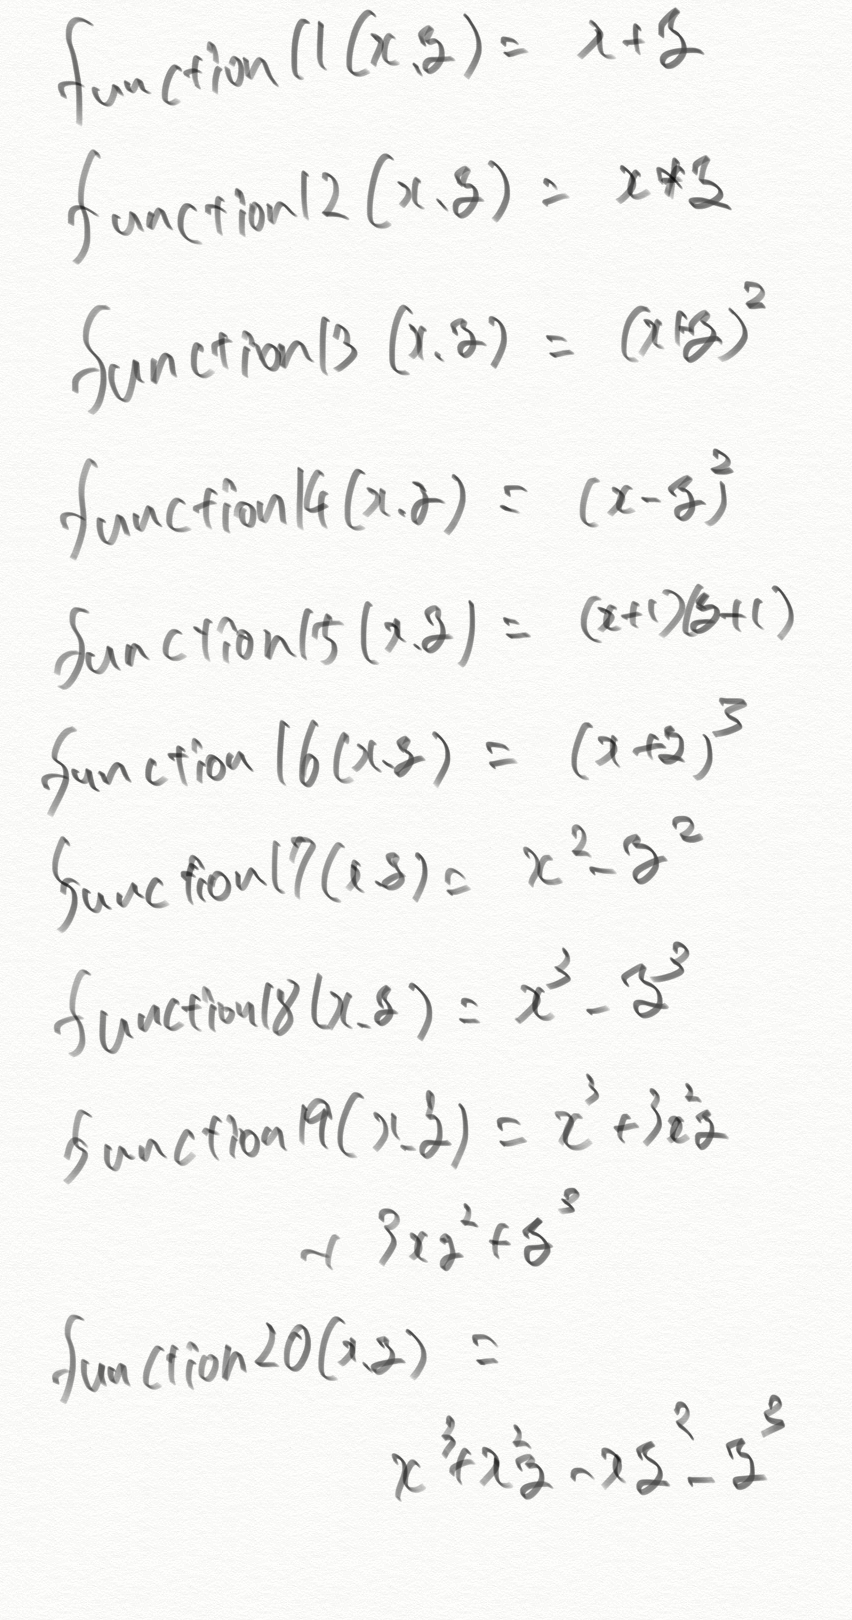 function 11(x,y) = x+y
function12(x,y) = x*y
function13(x,y) = (x+y)²
function14(x,y) = (x-y)²
function15(x,y) = (x+1)(y+1)
function16(x,y) = (x+y)³
function17(x,y) = x²-y²
function18(x,y) = x³-y³
function19(x,y) = x³+3x²y
+ 3xy²+y³
function20(x,y) =
x³+x²y-xy²-y³